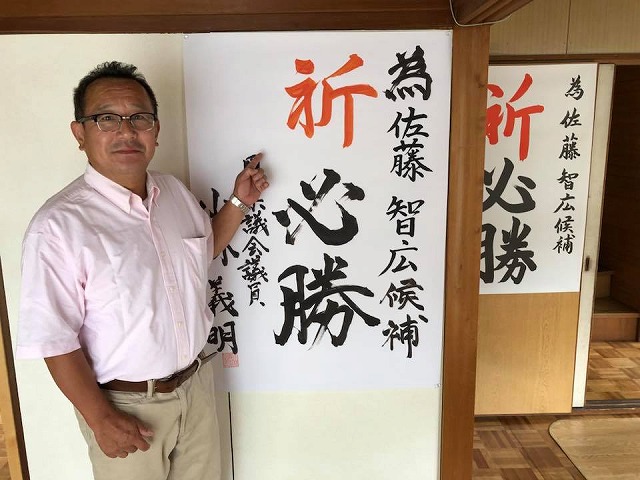 為 佐藤 智広候補
祈 必勝
議会議員
義明
為 佐藤 智広候補
祈 必勝